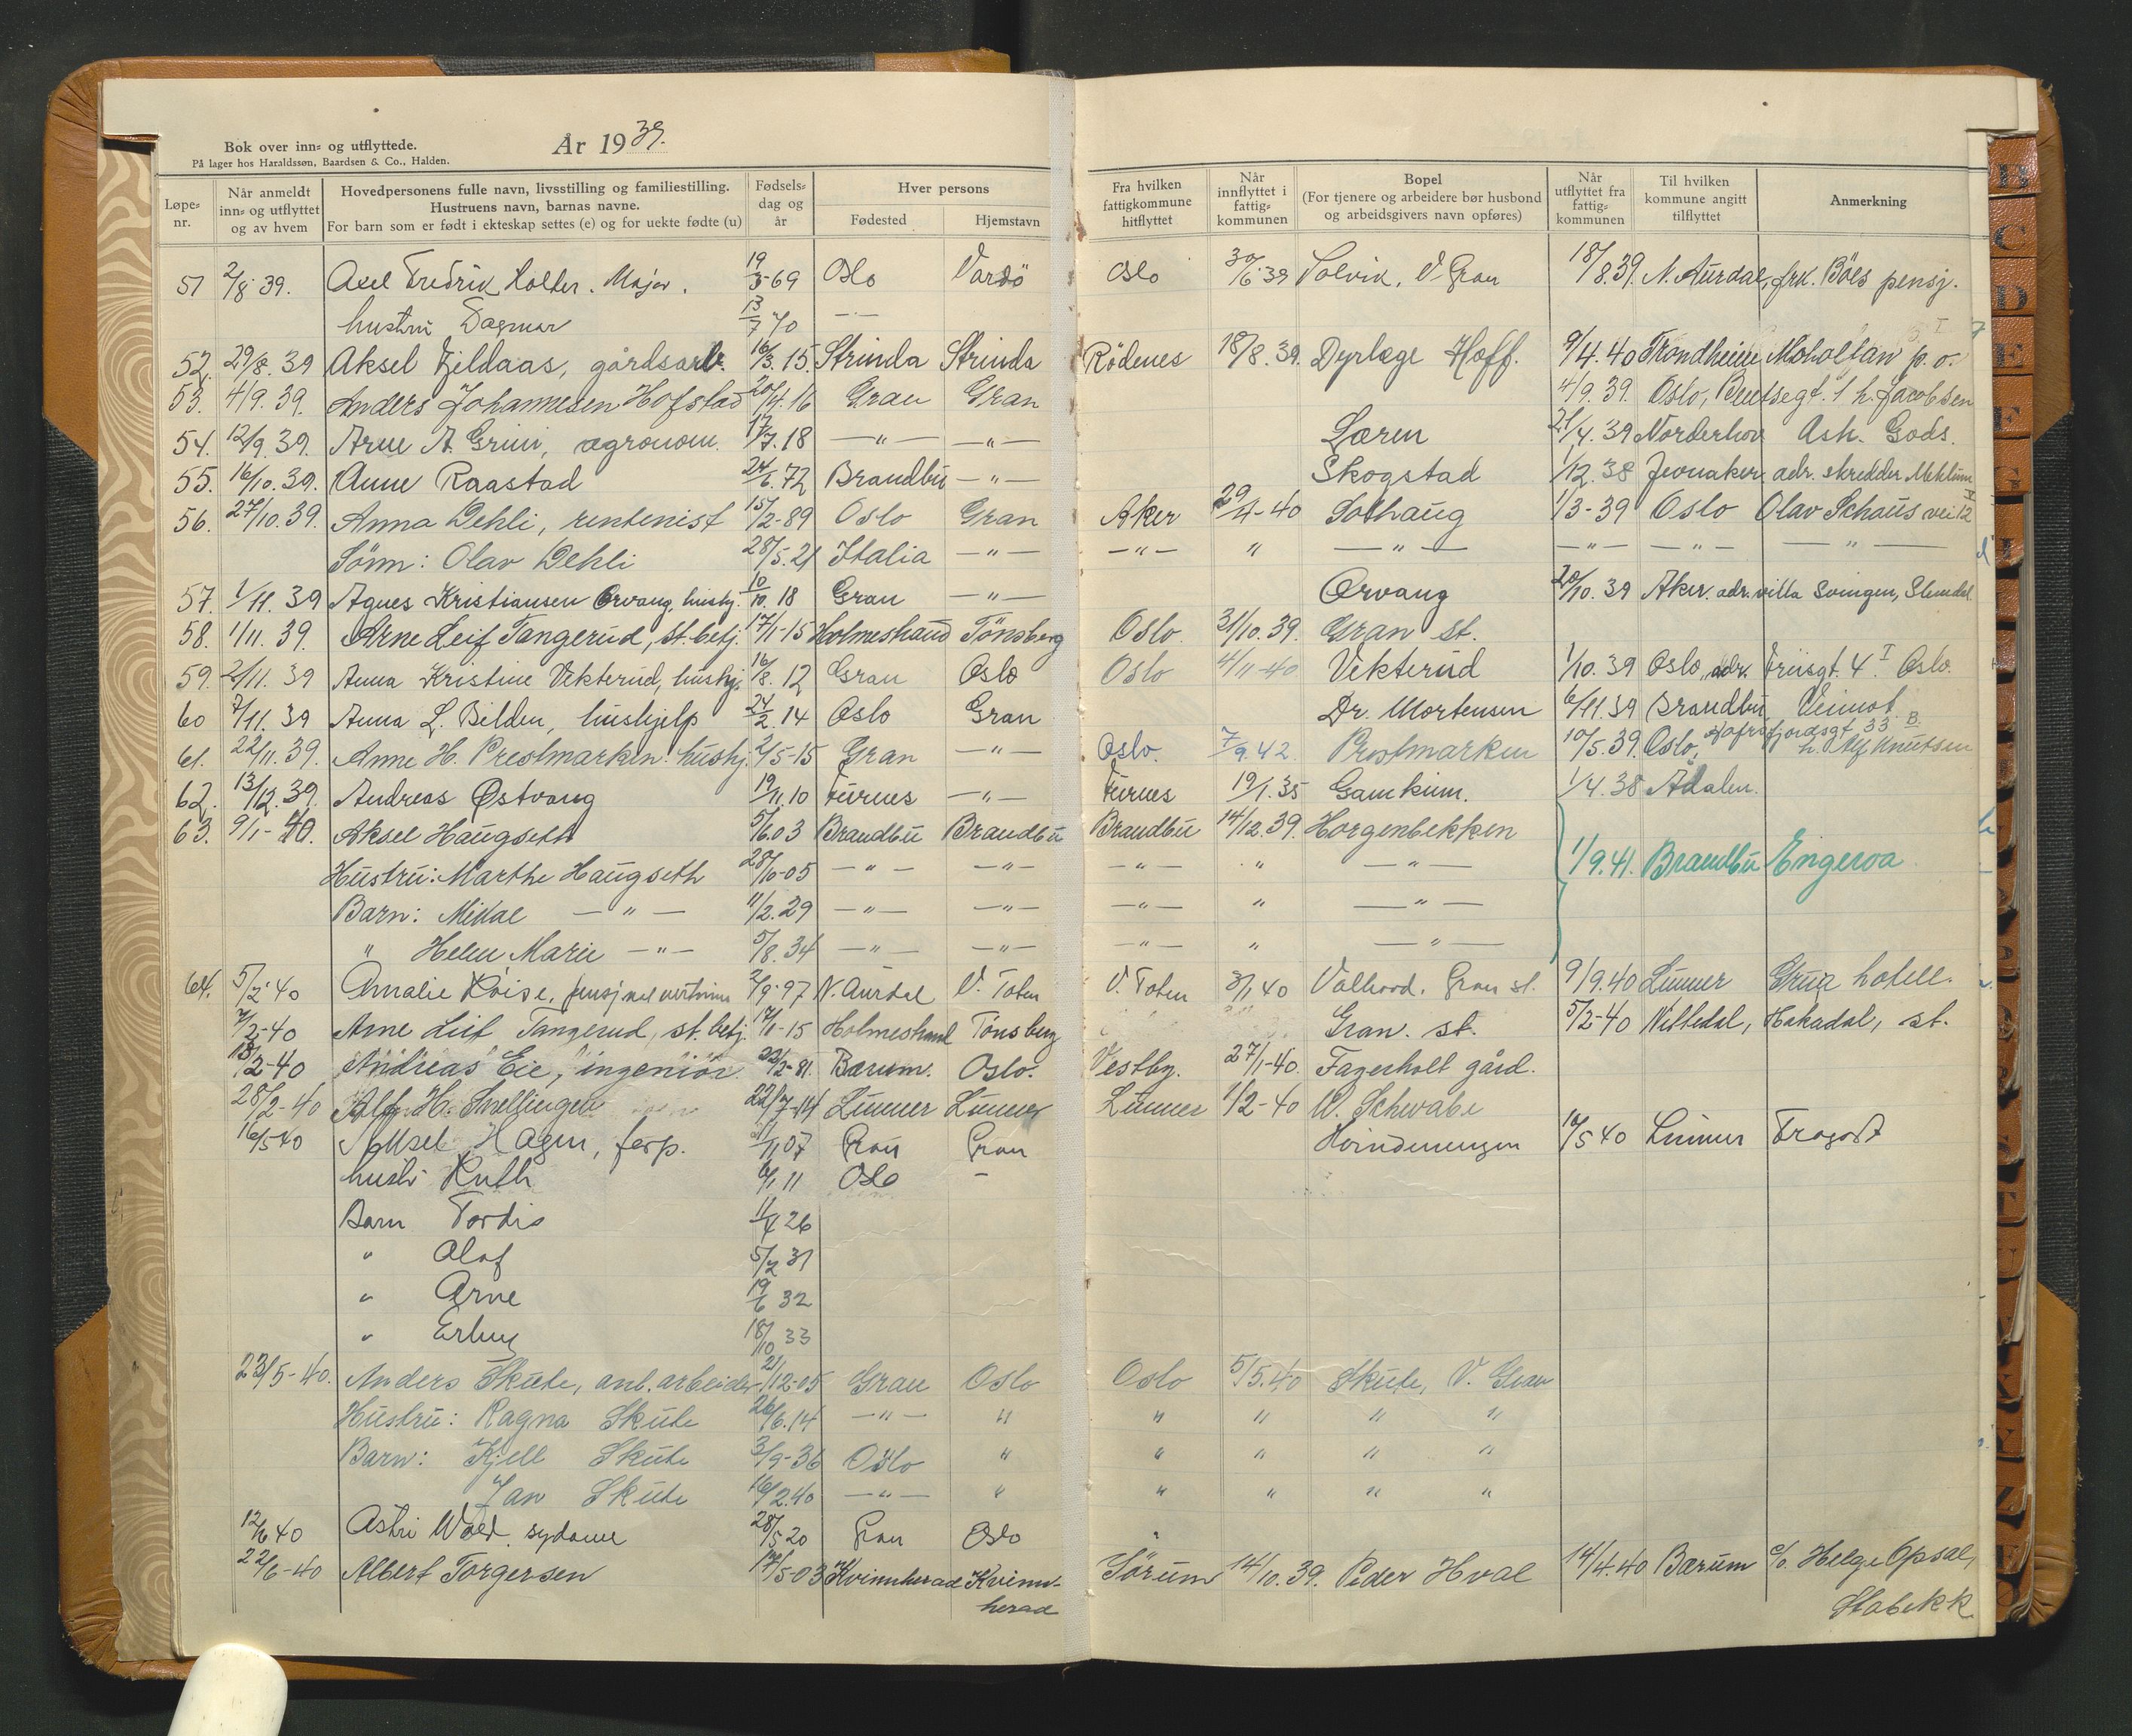 Bok over inn- og utflyttede.
På lager hos Haraldssøn, Baardsen & Co., Halden.
År 1939.
Løpe-nr. Når anmeldt inn- og utflyttet og av hvem Hovedpersonens fulle navn, livsstilling og familiestilling. Hustruens navn, barnas navne. For barn som er født i ekteskap settes (e) og for uekte fødte (u) Fødsels-dag og år Hver persons Fødested Hjemstavn Fra hvilken fattigkommune hitflyttet Når innflyttet i fattig-kommunen Bopel (For tjenere og arbeidere bør husbond og arbeidsgivers navn opføres) Når utflyttet fra fattig-kommunen Til hvilken kommune angitt tilflyttet Anmerkning
51 2/8 39. Axel Fredrik Holter. Major. 19/3-69 Oslo Vardö Oslo 30/6 39 Solvik, V. Gran 18/8.39. N. Aurdal, frk. Böes pensj.
hustru Dagmar 13/7 70 — —
52. 29/8. 39 Aksel Fjeldaas, gårdsarb. 16/3. 15. Strinda Strinda Rödenes 18/8. 39. Dyrlege Hoff. 9/4. 40 Trondheim Moholtan p.o.
53. 4/9. 39. Anders Johannesen Hofstad 20/4. 16 Gran Gran 4/9. 39. Oslo, Bentsegt. 1 h. Jacobsen
54. 12/9. 39. Arne A. Grini, agronom. 17/7. 18 — " — — " — Læren 21/4. 39 Norderhov Ask. Gods.
55. 16/10. 39. Anne Raastad 24/6. 72 Brandbu — " — Skogstad 1/12. 38 Jevnaker adr. skredder Meklum
56. 27/10. 39. Anna Dehli, rentenist 15/2-89 Oslo Gran Aker 29/4-40 Solhaug 1/3-39 Oslo Olav Schous vei 12
Sönn: Olav Dehli 28/5. 21 Italia — " — — " — " — " — — " — — " — — " —
57. 1/11. 39 Agnes Kristiansen Orvang, hushj. 10/10. 18 Gran — " — Orvang 20/10. 39 Aker. adr. villa Svingen, Slemdal
58. 1/11. 39. Arne Leif Tangerud, st. betj. 17/1-15 Holmestrand Tönsberg Oslo. 31/10. 39. Gran st.
59. 2/11. 39 Anna Kristine Vekterud, hushj. 16/8. 12 Gran Oslo Oslo 4/11-40 Vekterud 1/10. 39 Oslo, adr. Friisgt. 4 I Oslo.
60 7/11. 39 Anna L. Bilden, hushjelp 24/2. 14 Oslo Gran Dr. Mortensen 6/11. 39 Brandbu Veimot
61. 22/11. 39. Anne H. Prestmarken. hushj. 2/5-15 Gran — " — Oslo. 7/9. 42 Prestmarken 10/5. 39. Oslo, Hafrsfjordsgt. 33 B. h. Alf Knutsen
62. 13/12. 39. Andreas Østvang 19/11. 10 Furnes — " — Furnes 19/1. 35 Gamkinn. 1/4. 38 Ådalen.
63. 9/1-40. Aksel Haugseth 5/6. 03 Brandbu Brandbu Brandbu 14/12. 39. Horgenbekken
Hustru: Marthe Haugseth 28/10-05 — " — — " — — " — " — " — 1/9. 41. Brandbu Engeroa
Barn: Mikal — " — 11/2. 29 — " — — " — — " — " — " —
" Helen Marie — " — 5/8. 34 — " — — " — — " — " — " —
64. 5/2 40 Amalie Roise, 2/9-97 N. Aurdal V. Toten V. Toten 3/1 40 Valhood. Gran st. 9/9. 40 Lunner Grua hotell.
7/2-40 Arne Leif Tangerud, st. betj. 17/1-15 Holmestrand Tönsberg Gran. st. 5/2-40 Nittedal, Hakadal, st.
13/2-40 Andreas Eie, ingeniör 22/2-81. Bærum. Oslo. Vestby. 27/1-40. Fagerholt gård.
28/2-40 Alf H. Snellingen 22/7-14 Lunner Lunner Lunner 1/2-40 W. Schwabe
16/5 40 Aksel Hagen, forp. 07 Gran Gran Hvindenengen 16/5 40 Lunner Tragost
hustr Ruth 6/1 11 Oslo -
Barn Tordis 11/4 26
" Olaf 5/2 31
" Arne 19/6 32
" Erling 18/10 33
23/5-40. Anders Skute, anl. arbeider 21/12-05 Gran Oslo Oslo 5/5. 40 Skute, V. Gran
Hustru: Ragna Skute 26/6. 14 — " — " " " " "
Barn: Kjell Skute 3/9-36 Oslo " " " " "
Jan Skute 16/2. 40 — " — " " " " "
12/6 40 Astri Woed. sydame 28/5 20 Gran Oslo "
22/6-40 Albert Torgersen 17/5-03 Kvinnherad Kvinn-herad Sörum 14/10. 39. Peder Hval 14/4. 40 Bærum c/o. Helge Opsal, Stabekk